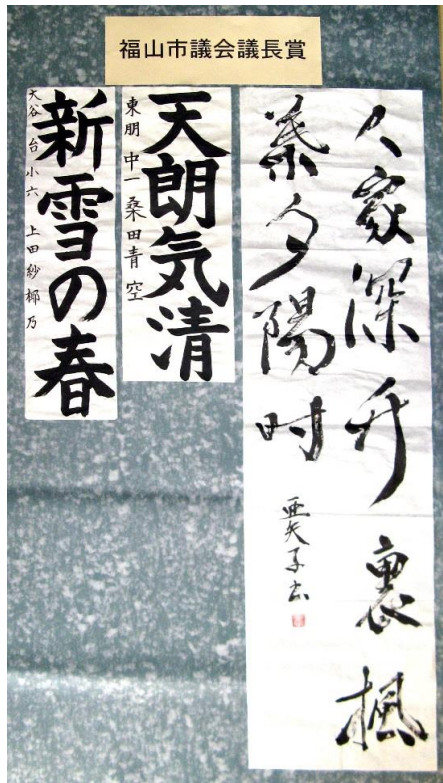 福山市議会議長賞
人家深竹裏楓
葉夕陽時
亜矢子書
天朗気清
東朋 中一 桑田青空
新雪の春
大谷台 小六 上田紗椰乃